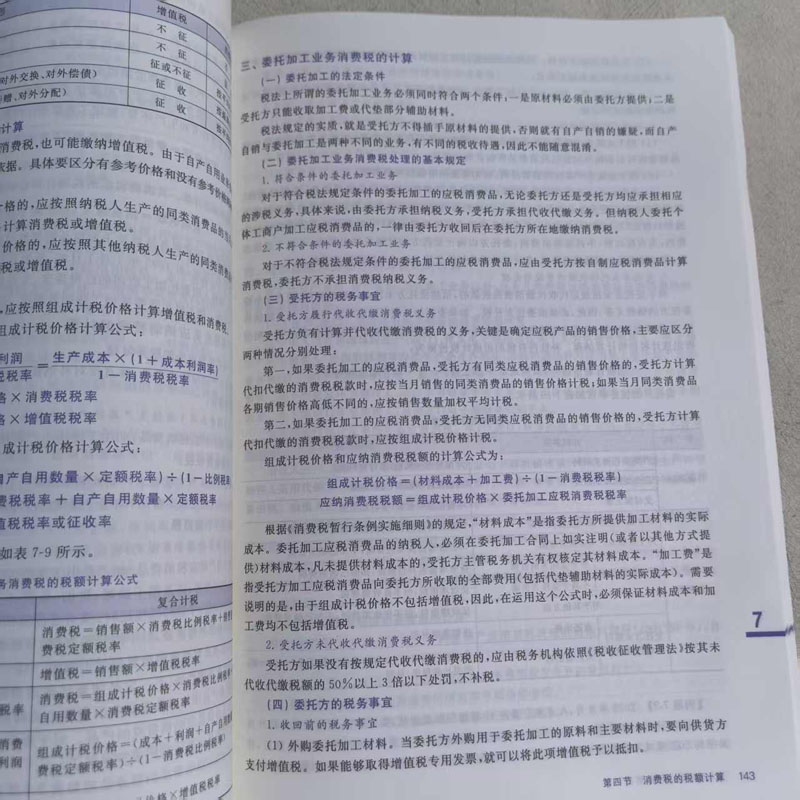 增值税
不 征
不 征
对外交换、对外偿债）
征或不征
征 收
赠、对外分配）
征 收
计算
消费税，也可能缴纳增值税。由于自产自用
依据。具体要区分有参考价格和没有参考价
价格的，应按照纳税人生产的同类消费品的
计算消费税或增值税。
价格的，应按照其他纳税人生产的同类消费
税或增值税。
，应按照组成计税价格计算增值税和消费税，
组成计税价格计算公式：
利润
税税率
=
生产成本×(1+成本利润率)
1-消费税税率
格×消费税税率
格×增值税税率
组成计税价格计算公式：
自产自用数量×定额税率)÷(1-比例税
费税税率+自产自用数量×定额税率
值税税率或征收率
如表 7-9 所示。
务消费税的税额计算公式
复合计税
消费税=销售额×消费税比例税率+销
费税定额税率
增值税=销售额×增值税税率
消费税=组成计税价格×消费税比例税
自用数量×消费税定额税率
税率
消费
利润
组成计税价格=(成本+利润+自产自用
费税定额税率)÷(1-消费税比例税率)
增值税=组成计税价格×增值税税率
三、委托加工业务消费税的计算
(一) 委托加工的法定条件
税法上所谓的委托加工业务必须同时符合两个条件：一是原材料必须由委托方提供；二是
受托方只能收取加工费或代垫部分辅助材料。
税法规定的实质，就是受托方不得插手原材料的提供，否则就有自产自销的嫌疑，而自产
自销与委托加工是两种不同的业务，有不同的税收待遇，因此不能随意混淆。
(二) 委托加工业务消费税处理的基本规定
1. 符合条件的委托加工业务
对于符合税法规定条件的委托加工的应税消费品，无论委托方还是受托方均应承担相应
的涉税义务，具体来说，由委托方承担纳税义务，受托方承担代收代缴义务。但纳税人委托个
体工商户加工应税消费品的，一律由委托方收回后在委托方所在地缴纳消费税。
2. 不符合条件的委托加工业务
对于不符合税法规定条件的委托加工的应税消费品，应由受托方按自制应税消费品计算
消费税，委托方不承担消费税纳税义务。
(三) 受托方的税务事宜
1. 受托方履行代收代缴消费税义务
受托方负有计算并代收代缴消费税的义务，关键是确定应税产品的销售价格，主要应区分
两种情况分别处理：
第一，如果委托加工的应税消费品，受托方有同类应税消费品的销售价格的，受托方计算
代扣代缴的消费税税款时，应按当月销售的同类消费品的销售价格计税；如果当月同类消费品
各期销售价格高低不同的，应按销售数量加权平均计税。
第二，如果委托加工的应税消费品，受托方无同类应税消费品的销售价格的，受托方计算
代扣代缴的消费税税款时，应按组成计税价格计税。
组成计税价格和应纳消费税税额的计算公式为：
组成计税价格=(材料成本+加工费)÷(1-消费税税率)
应纳消费税税额=组成计税价格×委托加工应税消费税税率
根据《消费税暂行条例实施细则》的规定，“材料成本”是指委托方所提供加工材料的实际
成本。委托加工应税消费品的纳税人，必须在委托加工合同上如实注明(或者以其他方式提
供)材料成本，凡未提供材料成本的，受托方主管税务机关有权核定其材料成本。“加工费”是
指受托方加工应税消费品向委托方所收取的全部费用(包括代垫辅助材料的实际成本)。需要
说明的是，由于组成计税价格不包括增值税，因此，在运用这个公式时，必须保证材料成本和加
工费均不包括增值税。
2. 受托方未代收代缴消费税义务
受托方如果没有按规定代收代缴消费税的，应由税务机构依照《税收征收管理法》按其未
代收代缴税额的 50%以上 3 倍以下处罚，不补税。
(四) 委托方的税务事宜
1. 收回前的税务事宜
(1) 外购委托加工材料。当委托方外购用于委托加工的原料和主要材料时，要向供货方
支付增值税。如果能够取得增值税专用发票，就可以将此项增值税予以抵扣。
7
第四节 消费税的税额计算 143